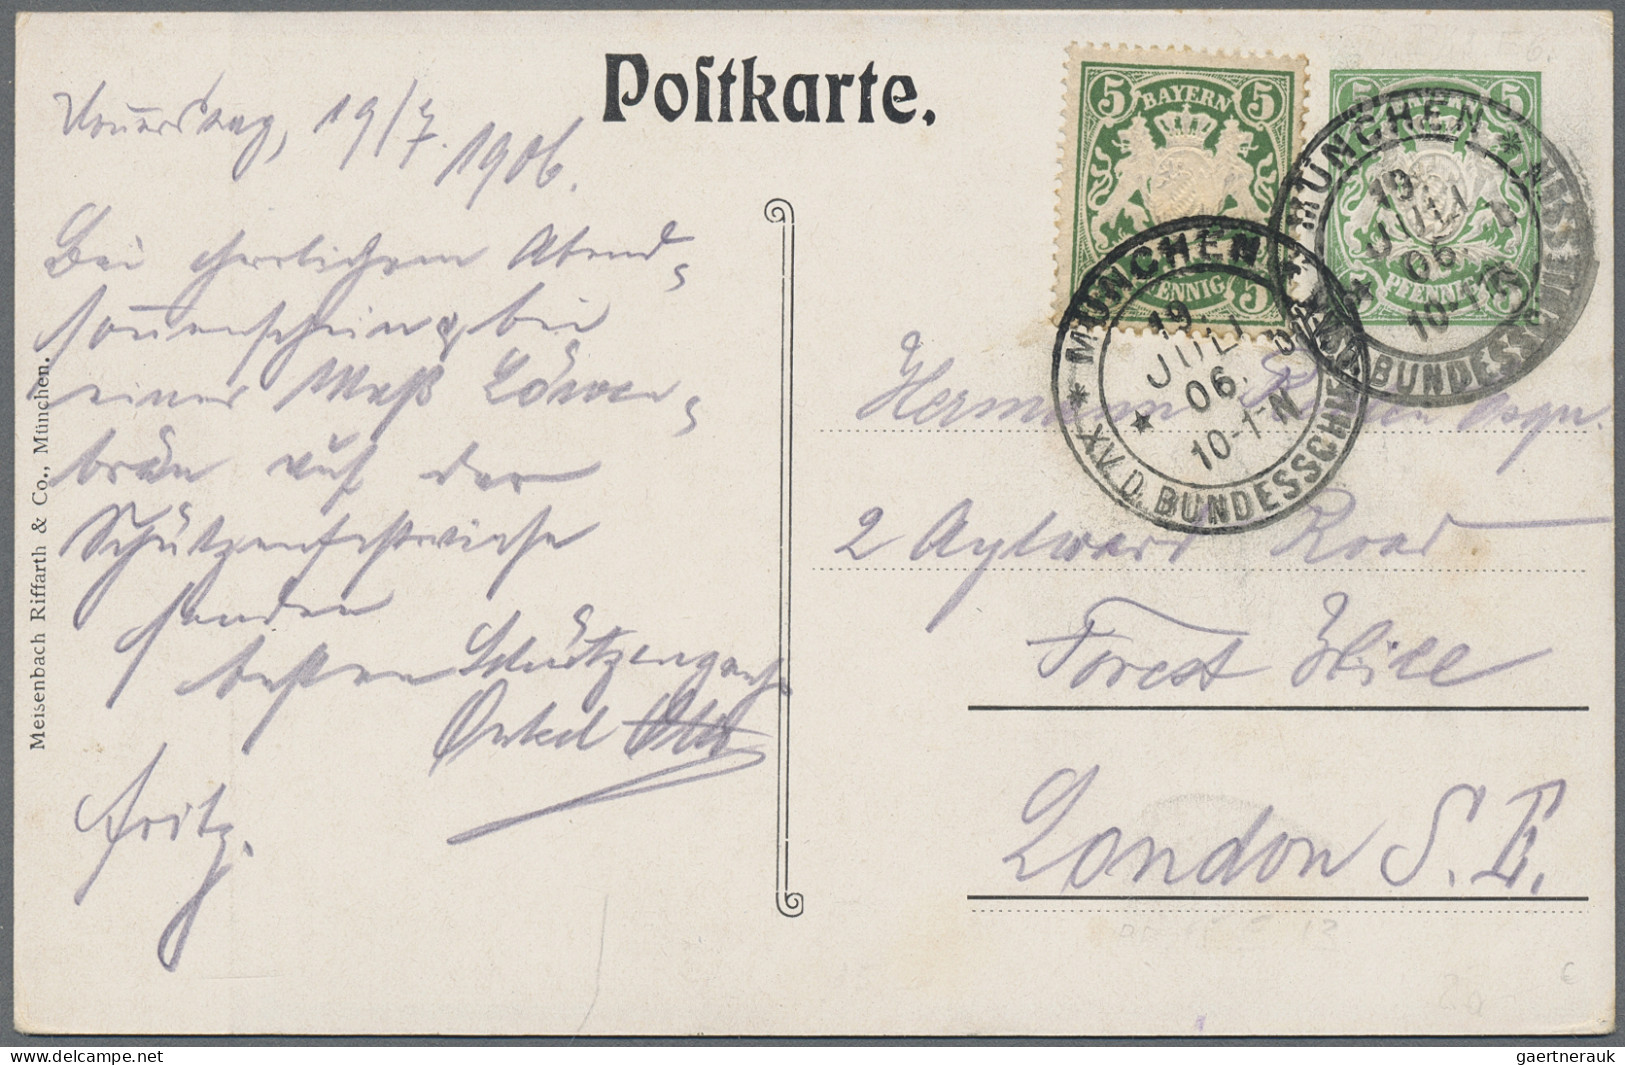 Postkarte.
Donnerstag, 19/7. 1906.
Bei herrlichem Abend-
sonnenschein & bei
einer Maß Löwen-
bräu auf der
Schützenfestwiese
senden
besten Schützengruß
Onkel Otto
Fritz.
Meisenbach Riffarth & Co., München.
5 BAYERN 5
PFENNIG 5
MÜNCHEN
19.
JULI
06.
10-11N
XV. D. BUNDESSCHIESSEN
5
PFENNIG 5
MÜNCHEN
19.
JULI
06.
10-11N
XV. D. BUNDESSCHIESSEN
Hermann Esqu.
2 Aylward Road
Forest Hill
London S. E.
gaertnerauk